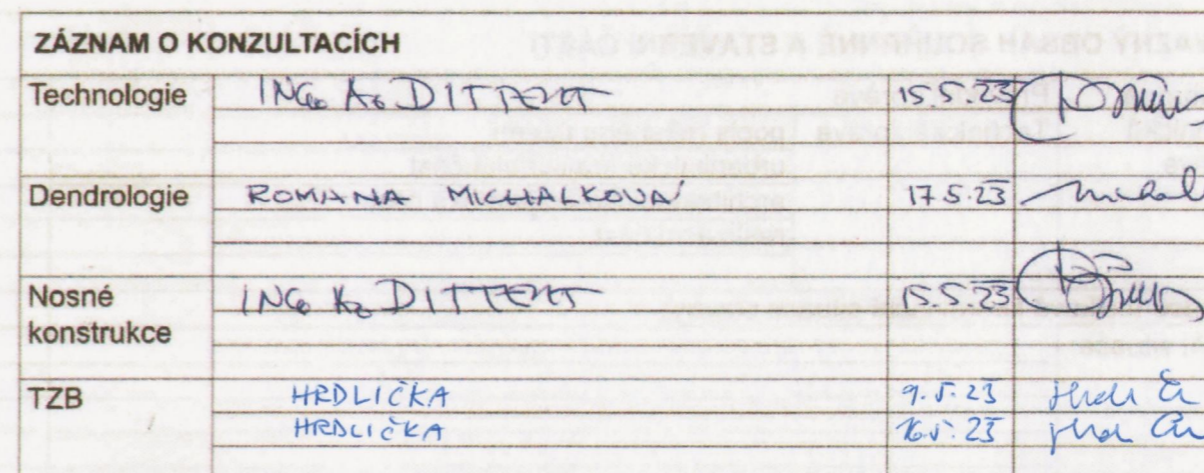 ZÁZNAM O KONZULTACÍCH
Technologie ING. K. DITTERT 15.5.23
Dendrologie ROMANA MICHALKOVÁ 17.5.23
Nosné konstrukce ING. K. DITTERT 15.5.23
TZB HRDLIČKA 9.5.23
HRDLIČKA 16.5.23